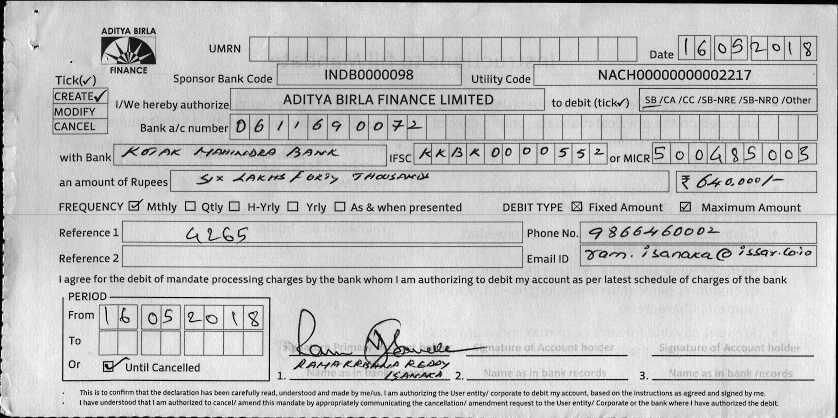 ADITYA BIRLA
FINANCE
UMRN
Date 16052018
Tick(✓)
Sponsor Bank Code INDB0000098 Utility Code NACH00000000002217
CREATE ✓
MODIFY
CANCEL
I/We hereby authorize ADITYA BIRLA FINANCE LIMITED to debit (tick✓) SB /CA /CC /SB-NRE /SB-NRO /Other
Bank a/c number 0611690072
with Bank KOTAK MAHINDRA BANK IFSC KKBK0000552 or MICR 500485003
an amount of Rupees SIX LAKHS FORTY THOUSANDS ₹ 640,000/-
FREQUENCY ☑ Mthly ☐ Qtly ☐ H-Yrly ☐ Yrly ☐ As & when presented DEBIT TYPE ☒ Fixed Amount ☑ Maximum Amount
Reference 1 4265 Phone No. 9866460002
Reference 2 Email ID ram.isanaka@issar.co.in
I agree for the debit of mandate processing charges by the bank whom I am authorizing to debit my account as per latest schedule of charges of the bank
PERIOD
From 16052018
To
Or ☑ Until Cancelled
Signature of Account holder Signature of Account holder
RAMAKRISHNA REDDY
ISANAKA
1. Name as in bank 2. Name as in bank records 3. Name as in bank records
· This is to confirm that the declaration has been carefully read, understood and made by me/us. I am authorizing the User entity/ corporate to debit my account, based on the instructions as agreed and signed by me.
· I have understood that I am authorized to cancel/ amend this mandate by appropriately communicating the cancellation/ amendment request to the User entity/ Corporate or the bank where I have authorized the debit.